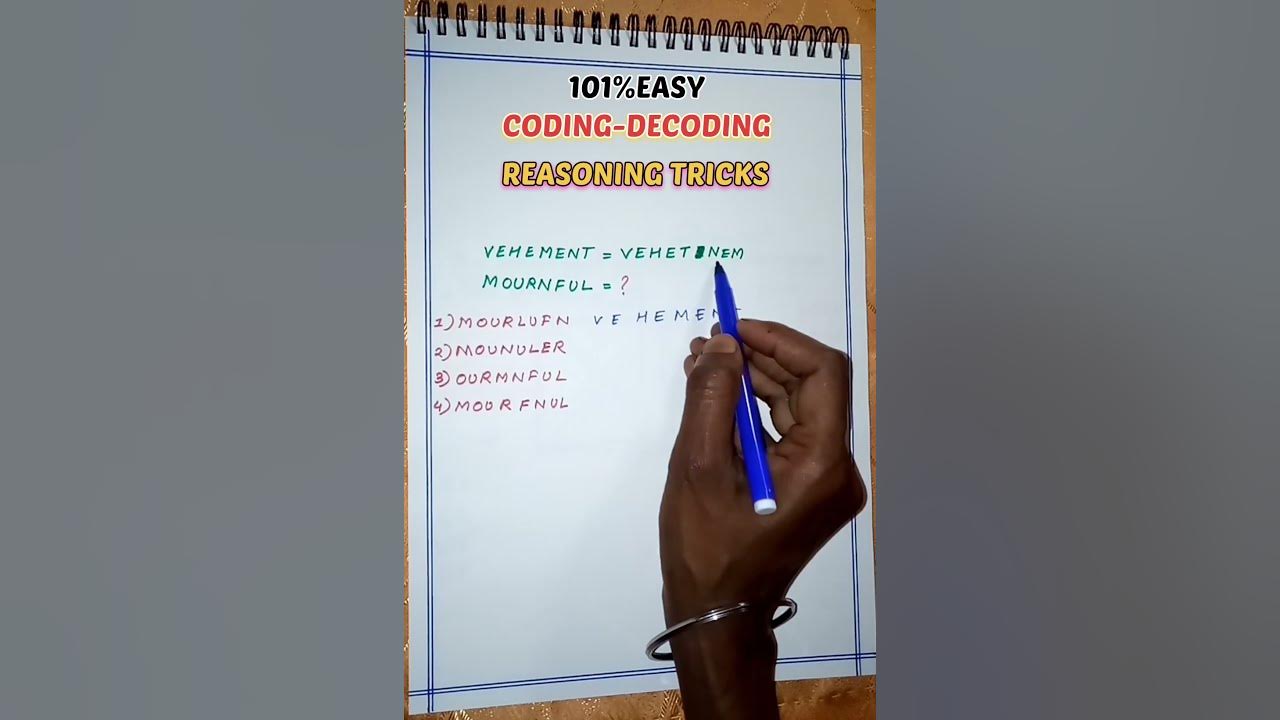 101%EASY
CODING-DECODING
REASONING TRICKS
VEHEMENT = VEHET NEM
MOURNFUL = ?
1) MOURLUFN VEHEMENT
2) MOUNULER
3) OURMNFUL
4) MOURFNUL